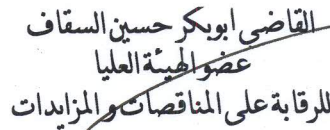 القاضي ابوبكر حسين السقاف
عضو الهيئة العليا
للرقابة على المناقصات والمزايدات